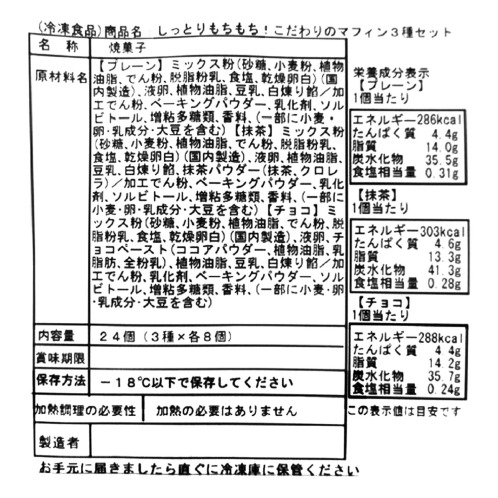 (冷凍食品)商品名 しっとりもちもち!こだわりのマフィン3種セット
名 称 焼菓子
原材料名 【プレーン】ミックス粉(砂糖、小麦粉、植物
油脂、でん粉、脱脂粉乳、食塩、乾燥卵白)(国
内製造)、液卵、植物油脂、豆乳、白煉り餡/加
工でん粉、ベーキングパウダー、乳化剤、ソル
ビトール、増粘多糖類、香料、(一部に小麦・
卵・乳成分・大豆を含む)【抹茶】ミックス粉
(砂糖、小麦粉、植物油脂、でん粉、脱脂粉乳、
食塩、乾燥卵白)(国内製造)、液卵、植物油脂、
豆乳、白煉り餡、抹茶パウダー(抹茶、クロレ
ラ)/加工でん粉、ベーキングパウダー、乳化
剤、ソルビトール、増粘多糖類、香料、(一部に
小麦・卵・乳成分・大豆を含む)【チョコ】ミック
ス粉(砂糖、小麦粉、植物油脂、でん粉、脱
脂粉乳、食塩、乾燥卵白)(国内製造)、液卵、チ
ョコペースト(ココアパウダー、植物油脂、乳
脂肪、全粉乳)、植物油脂、豆乳、白煉り餡/加
工でん粉、乳化剤、ベーキングパウダー、ソル
ビトール、増粘多糖類、香料、(一部に小麦・卵
・乳成分・大豆を含む)
内容量 24個(3種×各8個)
賞味期限
保存方法 −18℃以下で保存してください
加熱調理の必要性 加熱の必要はありません
製造者
お手元に届きましたら直ぐに冷凍庫に保管ください
栄養成分表示
【プレーン】
1個当たり
エネルギー286kcal
たんぱく質 4.4g
脂質 14.0g
炭水化物 35.5g
食塩相当量 0.31g
【抹茶】
1個当たり
エネルギー303kcal
たんぱく質 4.6g
脂質 13.3g
炭水化物 41.3g
食塩相当量 0.28g
【チョコ】
1個当たり
エネルギー288kcal
たんぱく質 4.4g
脂質 14.2g
炭水化物 35.7g
食塩相当量 0.24g
この表示値は目安です